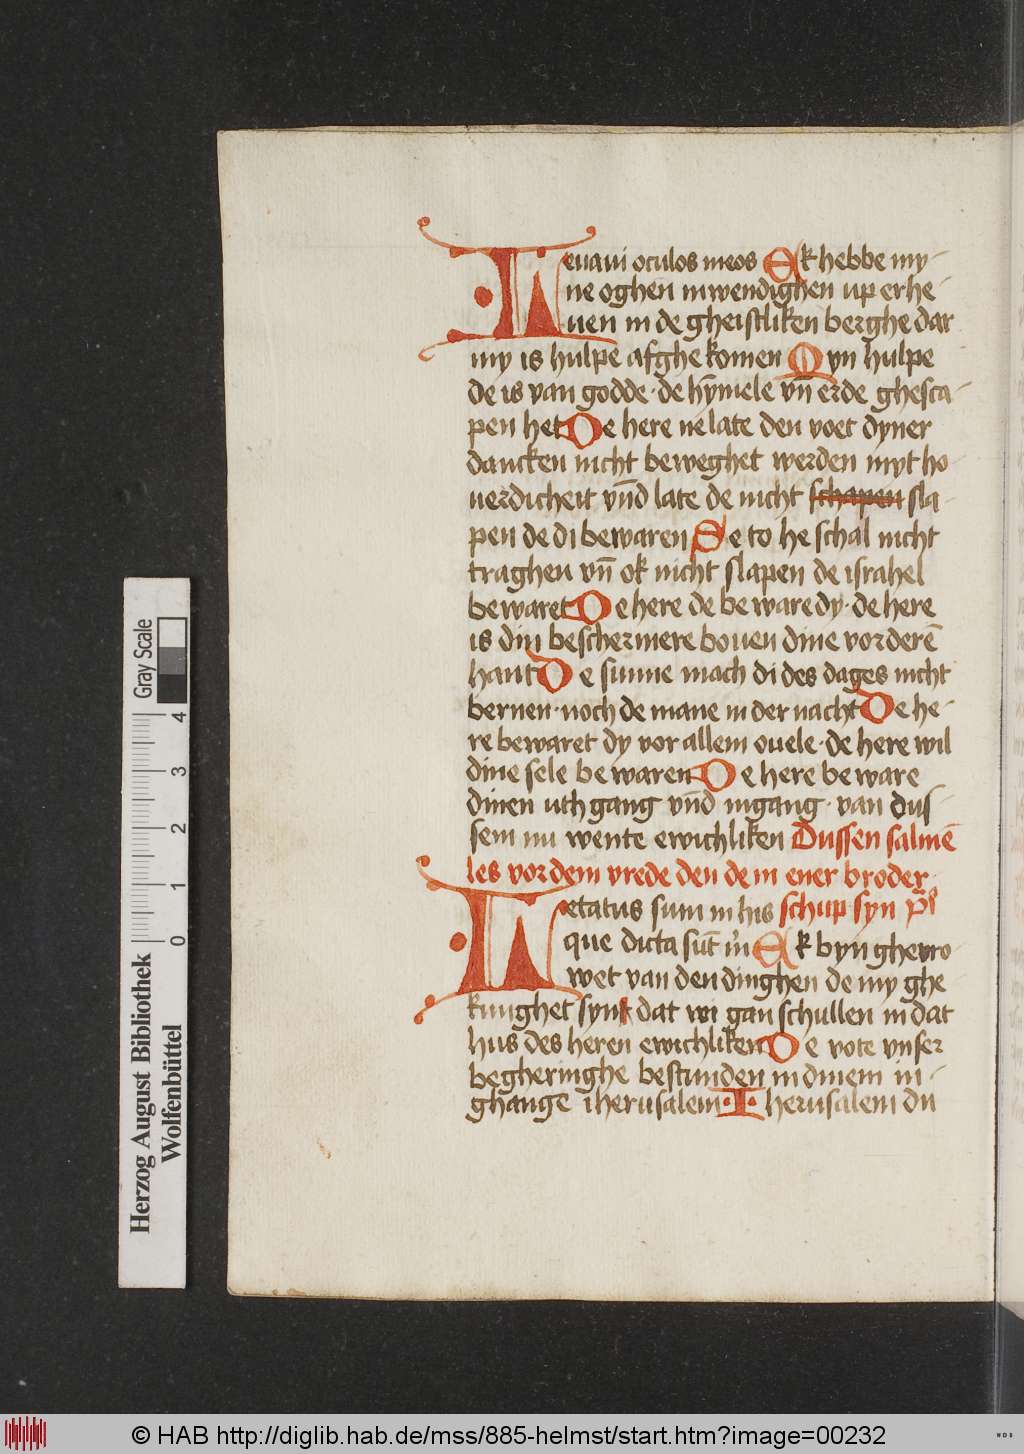 Leuaui oculos meos Ek hebbe my-
ne oghen inwendighen up erhe-
uen in de gheistliken berghe dar
my is hulpe afghekomen Myn hulpe
de is van godde · de hȳmele vn̄ erde ghesca-
pen het De here ne late den voet dyner
dancken nicht beweghet werden myt ho-
uerdicheit vn̄d late de nicht schapen sla-
pen de di bewaren Se to he schal nicht
traghen vn̄ ok nicht slapen de israhel
bewaret De here de beware dy · de here
is din beschermere bouen dine vorderē
hant De sunne mach di des dages nicht
bernen · noch de mane in der nacht De he-
re bewaret dy vor allem ouele · de here wil
dine sele bewaren De here beware
dinen uthgang vn̄d ingang · van dus-
sem nu wente ewichliken Dussen salmē
les vor dem vrede den dem ener broder
Letatus sum in his schup syn p̄s
que dicta sūt m̉ Ek byn ghevro-
wet van den dinghen de my ghe
kunghet synt dat wi gan schullen in dat
hus des heren ewichliken De vote vnser
begheringhe bestunden in dinem in-
ghange iherusalem · Iherusalem du
Gray Scale
0 1 2 3 4
Herzog August Bibliothek
Wolfenbüttel
© HAB http://diglib.hab.de/mss/885-helmst/start.htm?image=00232